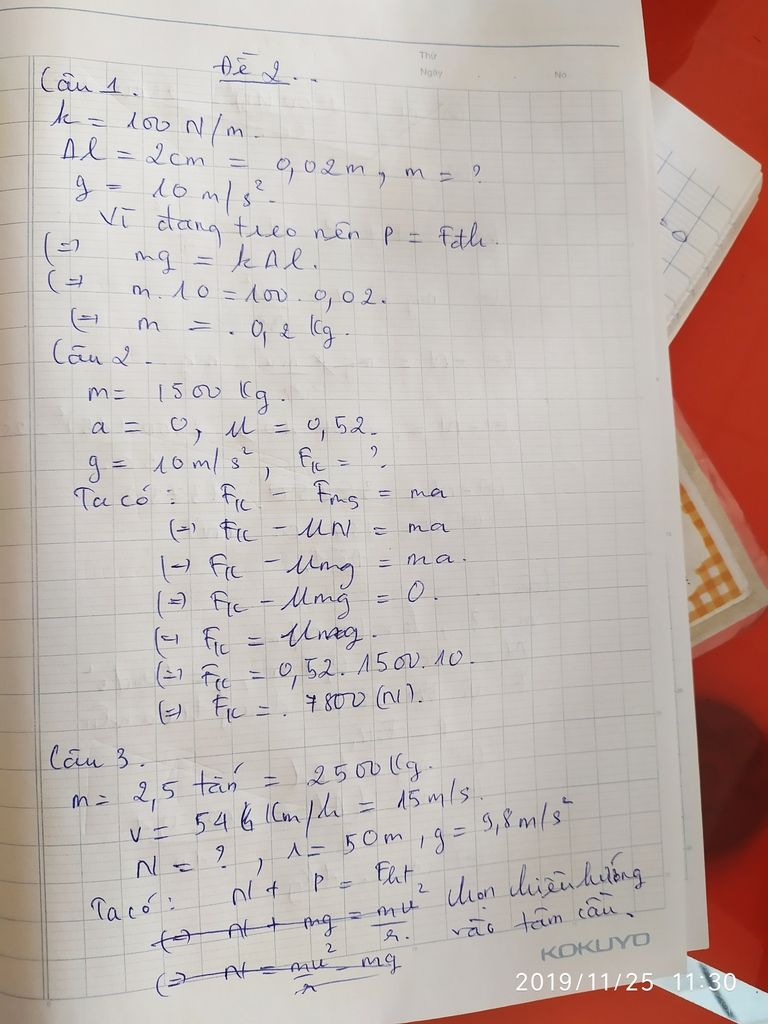 Thứ
Ngày . . No
Đề 2...
Câu 1.
k = 100 N/m.
Δl = 2cm = 0,02m, m = ?
g = 10 m/s².
Vì đang treo nên P = Fđh.
(=) mg = kΔl.
(=) m.10 = 100.0,02.
(=) m = . 0,2 Kg.
Câu 2.
m = 1500 Kg.
a = 0, μ = 0,52.
g = 10m/s², Fk = ?
Ta có: Fk - Fms = ma
(=) Fk - μN = ma
(=) Fk - μmg = ma.
(=) Fk - μmg = 0.
(=) Fk = μmg.
(=) Fk = 0,52.1500.10.
(=) Fk = . 7800 (N).
Câu 3.
m = 2,5 tấn = 2500 Kg.
v = 54 Km/h = 15m/s.
N = ?, r = 50m, g = 9,8m/s²
Ta có: N + P = Fht chọn chiều hướng
(=) N + mg = mv²/r. vào tâm cầu.
(=) N = mv²/r - mg
KOKUYO
2019/11/25 11:30